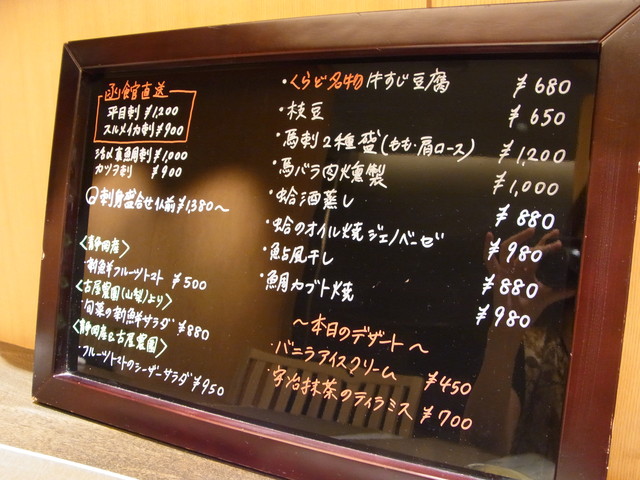 函館直送
平目刺 ¥1,200
スルメイカ刺 ¥900
活〆真鯛刺 ¥1,000
カツヲ刺 ¥900
刺身盛合せ 1人前 ¥1,380〜
<静岡産>
・新鮮フルーツトマト ¥500
<古屋農園(山梨)より>
・旬菜の新鮮サラダ ¥880
<静岡産と古屋農園>
・フルーツトマトのシーザーサラダ ¥950
・くらど名物 牛すじ豆腐 ¥680
・枝豆 ¥650
・馬刺2種盛(もも・肩ロース) ¥1,200
・馬バラ肉燻製 ¥1,000
・蛤酒蒸し ¥880
・蛤のオイル焼ジェノベーゼ ¥980
・鮎風干し ¥880
・鯛カブト焼 ¥980
〜本日のデザート〜
・バニラアイスクリーム ¥450
・宇治抹茶のティラミス ¥700